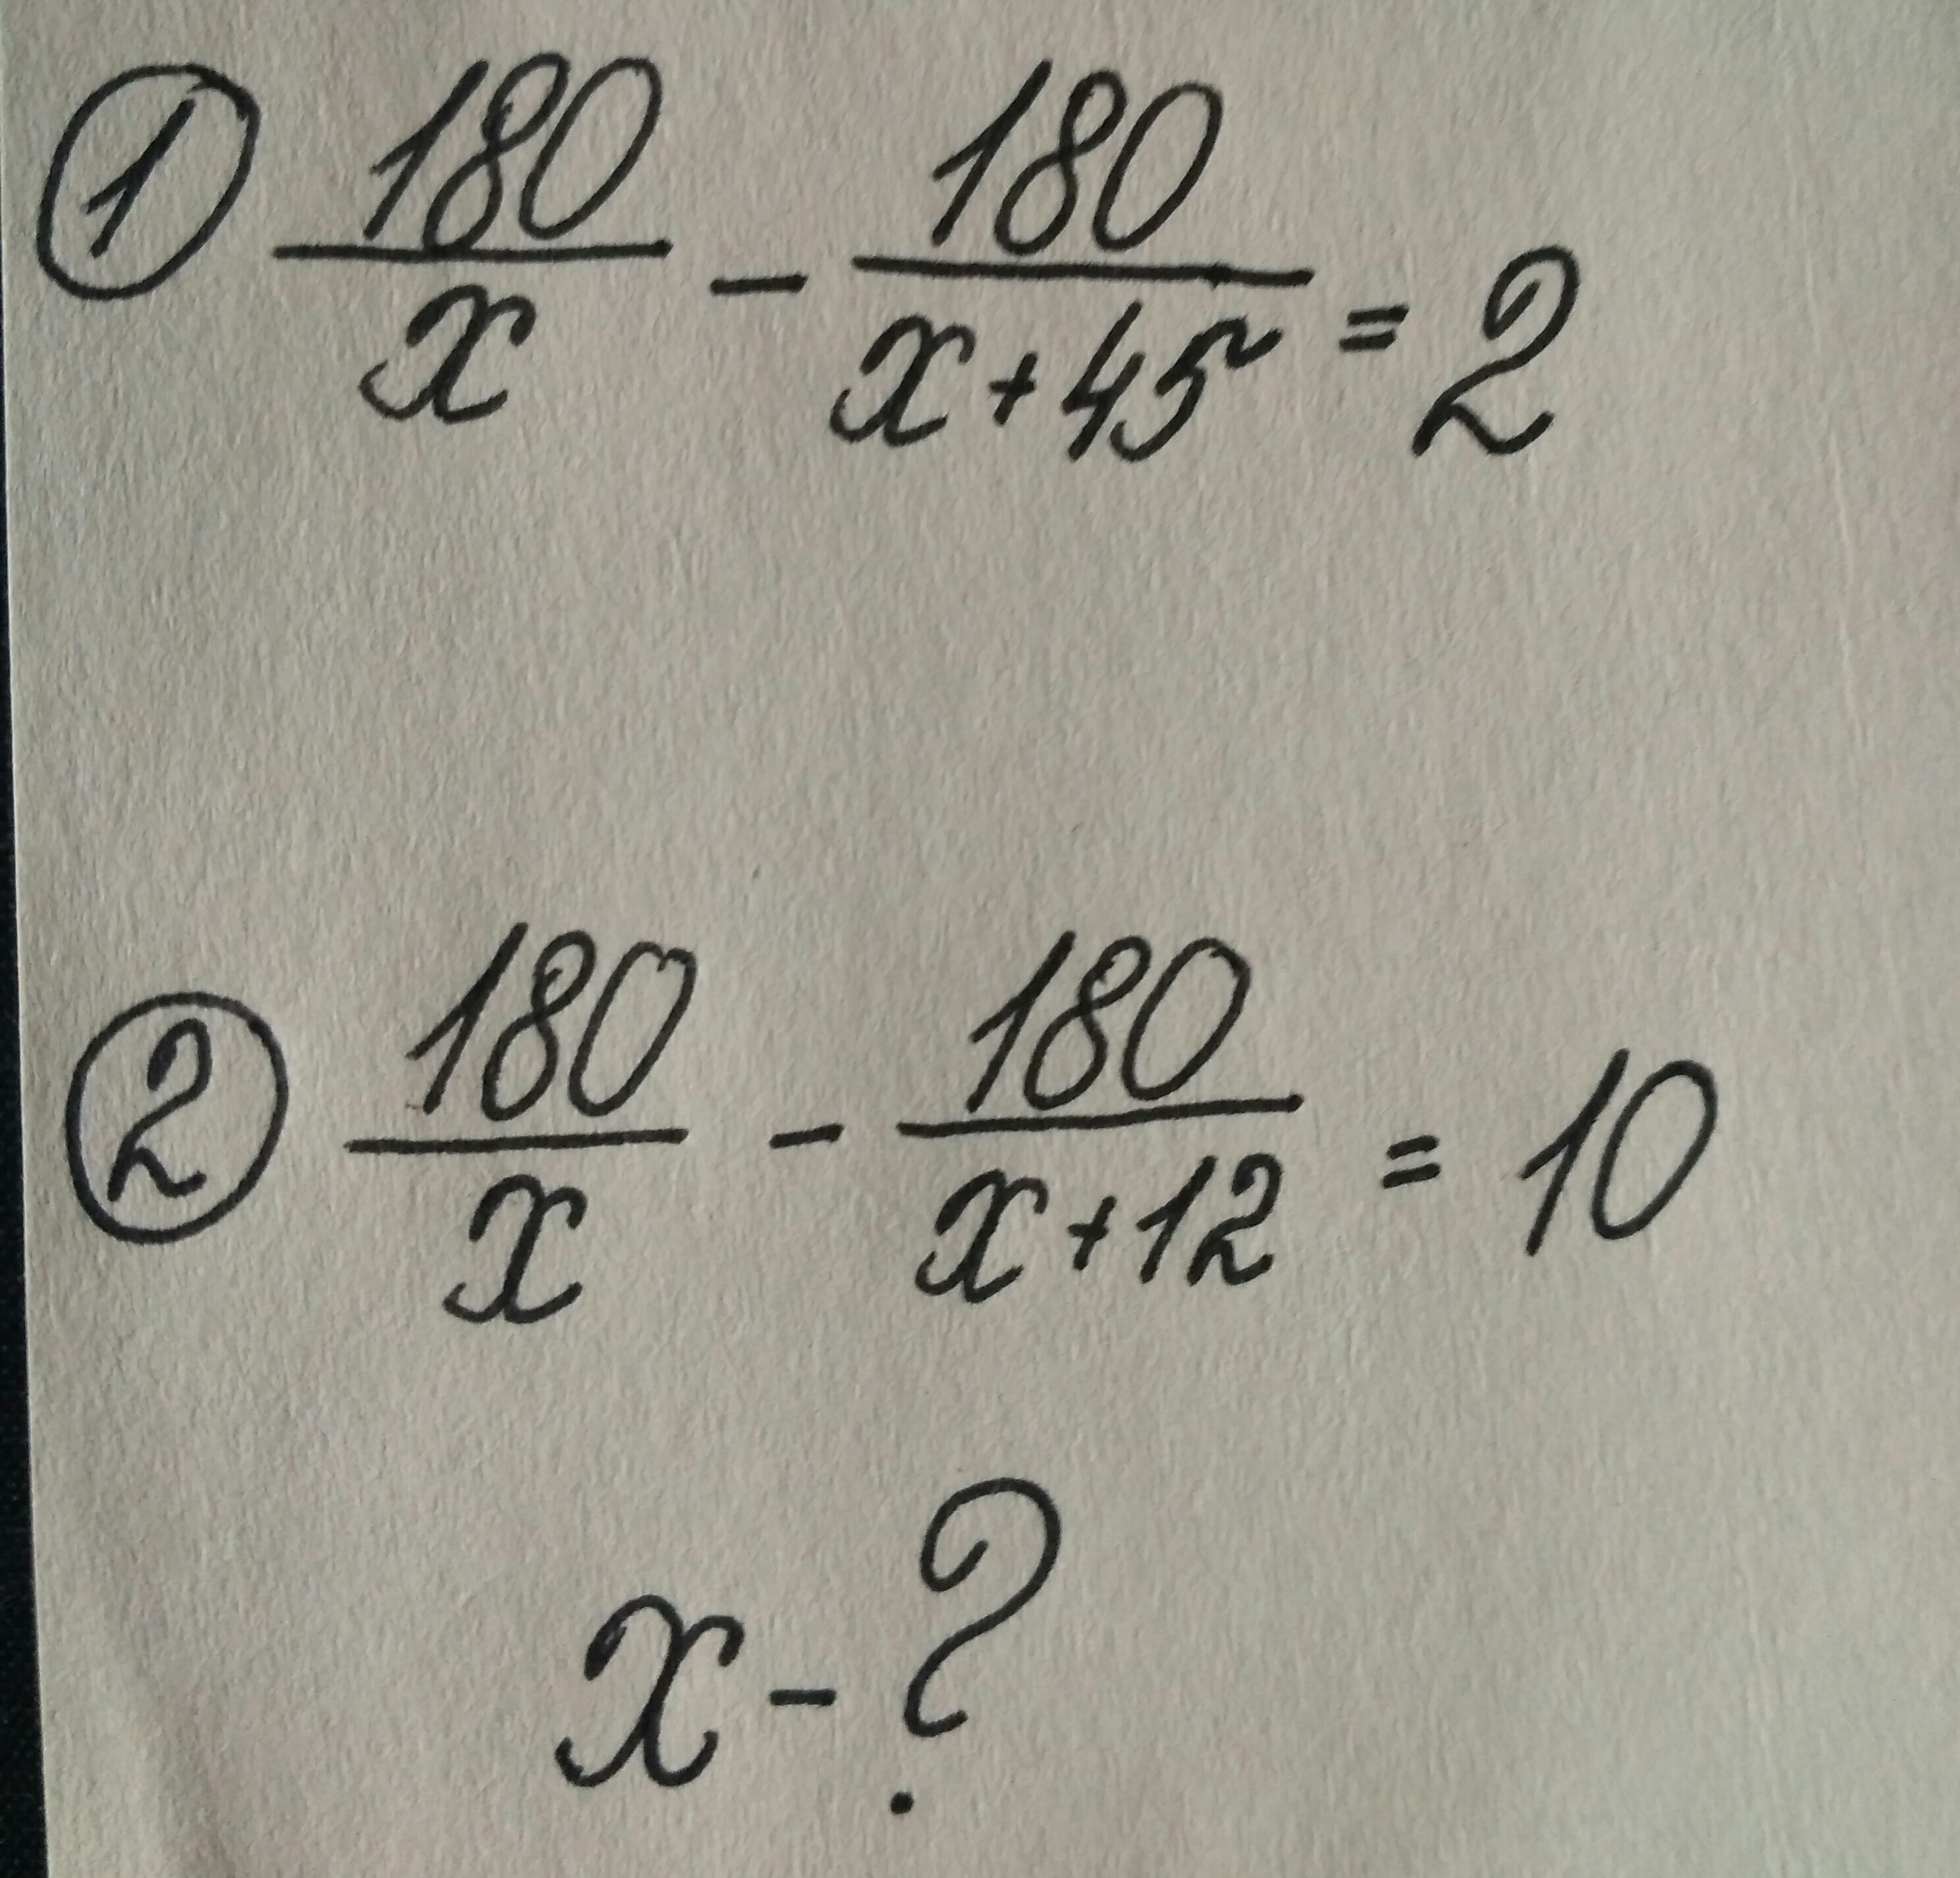 ① 180/x - 180/(x+45) = 2
② 180/x - 180/(x+12) = 10
x - ?